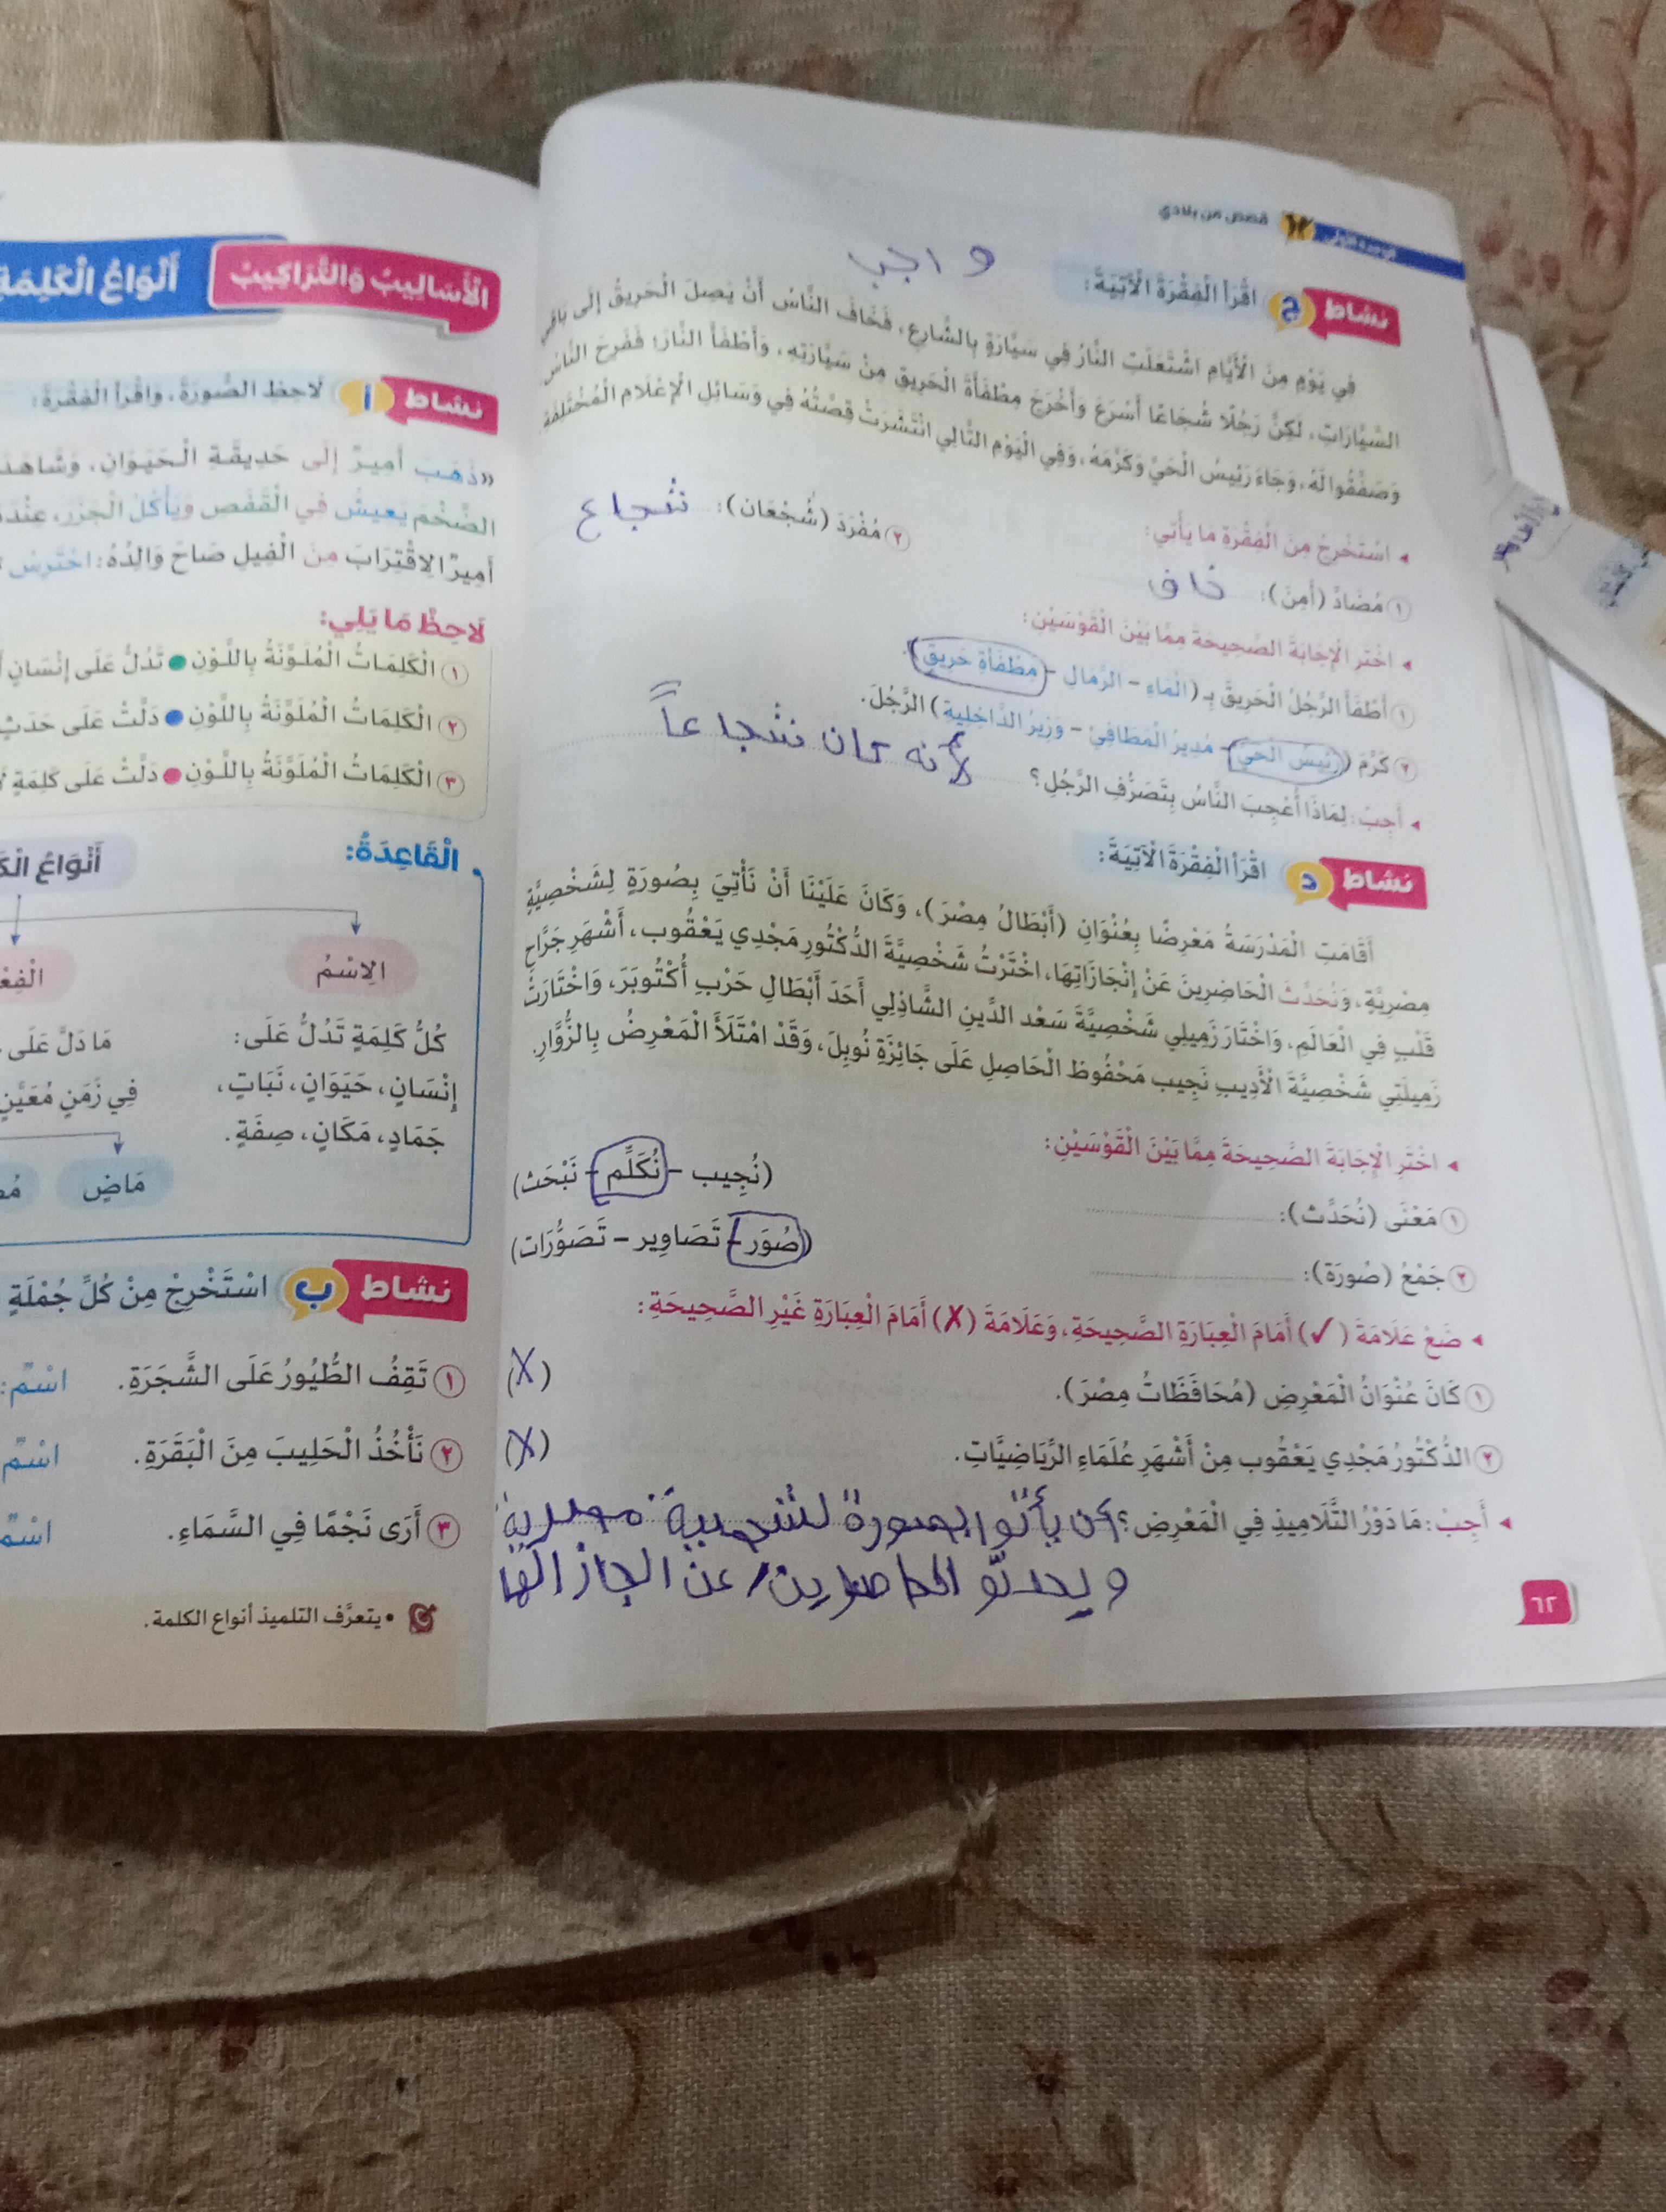 الوحدة الأولى
قصص من بلادي
واجب
نشاط ج اقْرَأِ الْفِقْرَةَ الْآتِيَةَ:
فِي يَوْمٍ مِنَ الْأَيَّامِ اشْتَعَلَتِ النَّارُ فِي سَيَّارَةٍ بِالشَّارِعِ، فَخَافَ النَّاسُ أَنْ يَصِلَ الْحَرِيقُ إِلَى بَاقِي
السَّيَّارَاتِ، لَكِنَّ رَجُلًا شُجَاعًا أَسْرَعَ وَأَخْرَجَ مِطْفَأَةَ الْحَرِيقِ مِنْ سَيَّارَتِهِ، وَأَطْفَأَ النَّارَ؛ فَفَرِحَ النَّاسُ
وَصَفَّقُوا لَهُ، وَجَاءَ رَئِيسُ الْحَيِّ وَكَرَّمَهُ، وَفِي الْيَوْمِ التَّالِي انْتَشَرَتْ قِصَّتُهُ فِي وَسَائِلِ الْإِعْلَامِ الْمُخْتَلِفَةِ
◂ اسْتَخْرِجْ مِنَ الْفِقْرَةِ مَا يَأْتِي:
١ مُضَادَّ (أَمِنَ): خاف
٢ مُفْرَدَ (شُجْعَان): شجاع
◂ اخْتَرِ الْإِجَابَةَ الصَّحِيحَةَ مِمَّا بَيْنَ الْقَوْسَيْنِ:
١ أَطْفَأَ الرَّجُلُ الْحَرِيقَ بِـ (الْمَاءِ – الرِّمَالِ – مِطْفَأَةِ حَرِيقٍ).
٢ كَرَّمَ (رَئِيسُ الْحَيِّ – مُدِيرُ الْمَطَافِئِ – وَزِيرُ الدَّاخِلِيَةِ) الرَّجُلَ.
◂ أَجِبْ: لِمَاذَا أُعْجِبَ النَّاسُ بِتَصَرُّفِ الرَّجُلِ؟ لأنه كان شجاعاً
نشاط د اقْرَأِ الْفِقْرَةَ الْآتِيَةَ:
أَقَامَتِ الْمَدْرَسَةُ مَعْرِضًا بِعُنْوَانِ (أَبْطَالُ مِصْرَ)، وَكَانَ عَلَيْنَا أَنْ نَأْتِيَ بِصُورَةٍ لِشَخْصِيَّةٍ
مِصْرِيَّةٍ، وَنُحَدِّثَ الْحَاضِرِينَ عَنْ إِنْجَازَاتِهَا، اخْتَرْتُ شَخْصِيَّةَ الدُّكْتُورِ مَجْدِي يَعْقُوب، أَشْهَرِ جَرَّاحِ
قَلْبٍ فِي الْعَالَمِ، وَاخْتَارَ زَمِيلِي شَخْصِيَّةَ سَعْد الدِّينِ الشَّاذِلِي أَحَدَ أَبْطَالِ حَرْبِ أُكْتُوبَرَ، وَاخْتَارَتْ
زَمِيلَتِي شَخْصِيَّةَ الْأَدِيبِ نَجِيب مَحْفُوظ الْحَاصِلِ عَلَى جَائِزَةِ نُوبِلَ، وَقَدْ امْتَلَأَ الْمَعْرِضُ بِالزُّوَّارِ.
◂ اخْتَرِ الْإِجَابَةَ الصَّحِيحَةَ مِمَّا بَيْنَ الْقَوْسَيْنِ:
١ مَعْنَى (نُحَدِّث): (نُجِيب – نُكَلِّم – نَبْحَث)
٢ جَمْعُ (صُورَة): (صُوَر – تَصَاوِير – تَصَوُّرَات)
◂ ضَعْ عَلَامَةَ (✓) أَمَامَ الْعِبَارَةِ الصَّحِيحَةِ، وَعَلَامَةَ (✗) أَمَامَ الْعِبَارَةِ غَيْرِ الصَّحِيحَةِ:
١ كَانَ عُنْوَانُ الْمَعْرِضِ (مُحَافَظَاتُ مِصْرَ). (X)
٢ الدُّكْتُورُ مَجْدِي يَعْقُوب مِنْ أَشْهَرِ عُلَمَاءِ الرِّيَاضِيَّاتِ. (X)
◂ أَجِبْ: مَا دَوْرُ التَّلَامِيذِ فِي الْمَعْرِضِ؟ أن يأتوا بصورة لشخصية مصرية
ويحدثو الحاضرين عن
٦٢
الْأَسَالِيبُ وَالتَّرَاكِيبُ
أَنْوَاعُ الْكَلِمَةِ
نشاط أ لَاحِظِ الصُّورَةَ، وَاقْرَأِ الْفِقْرَةَ:
«ذَهَبَ أَمِيرٌ إِلَى حَدِيقَةِ الْحَيَوَانِ، وَشَاهَدَ
الضَّخْمَ يَعِيشُ فِي الْقَفَصِ وَيَأْكُلُ الْجَزَرَ، عِنْدَ
أَمِيرٌ الِاقْتِرَابَ مِنَ الْفِيلِ صَاحَ وَالِدُهُ: احْتَرِسْ
لَاحِظْ مَا يَلِي:
١ الْكَلِمَاتُ الْمُلَوَّنَةُ بِاللَّوْنِ ● تَدُلُّ عَلَى إِنْسَانٍ
٢ الْكَلِمَاتُ الْمُلَوَّنَةُ بِاللَّوْنِ ● دَلَّتْ عَلَى حَدَثٍ
٣ الْكَلِمَاتُ الْمُلَوَّنَةُ بِاللَّوْنِ ● دَلَّتْ عَلَى كَلِمَةٍ
الْقَاعِدَةُ:
أَنْوَاعُ
الِاسْمُ
كُلُّ كَلِمَةٍ تَدُلُّ عَلَى:
إِنْسَانٍ، حَيَوَانٍ، نَبَاتٍ،
جَمَادٍ، مَكَانٍ، صِفَةٍ.
مَا دَلَّ عَلَى
فِي زَمَنٍ مُعَيَّنٍ
مَاضٍ
نشاط ب اسْتَخْرِجْ مِنْ كُلِّ جُمْلَةٍ
١ تَقِفُ الطُّيُورُ عَلَى الشَّجَرَةِ. اسْمٌ:
٢ نَأْخُذُ الْحَلِيبَ مِنَ الْبَقَرَةِ. اسْمٌ
٣ أَرَى نَجْمًا فِي السَّمَاءِ. اسْمٌ
• يتعرَّف التلميذ أنواع الكلمة.